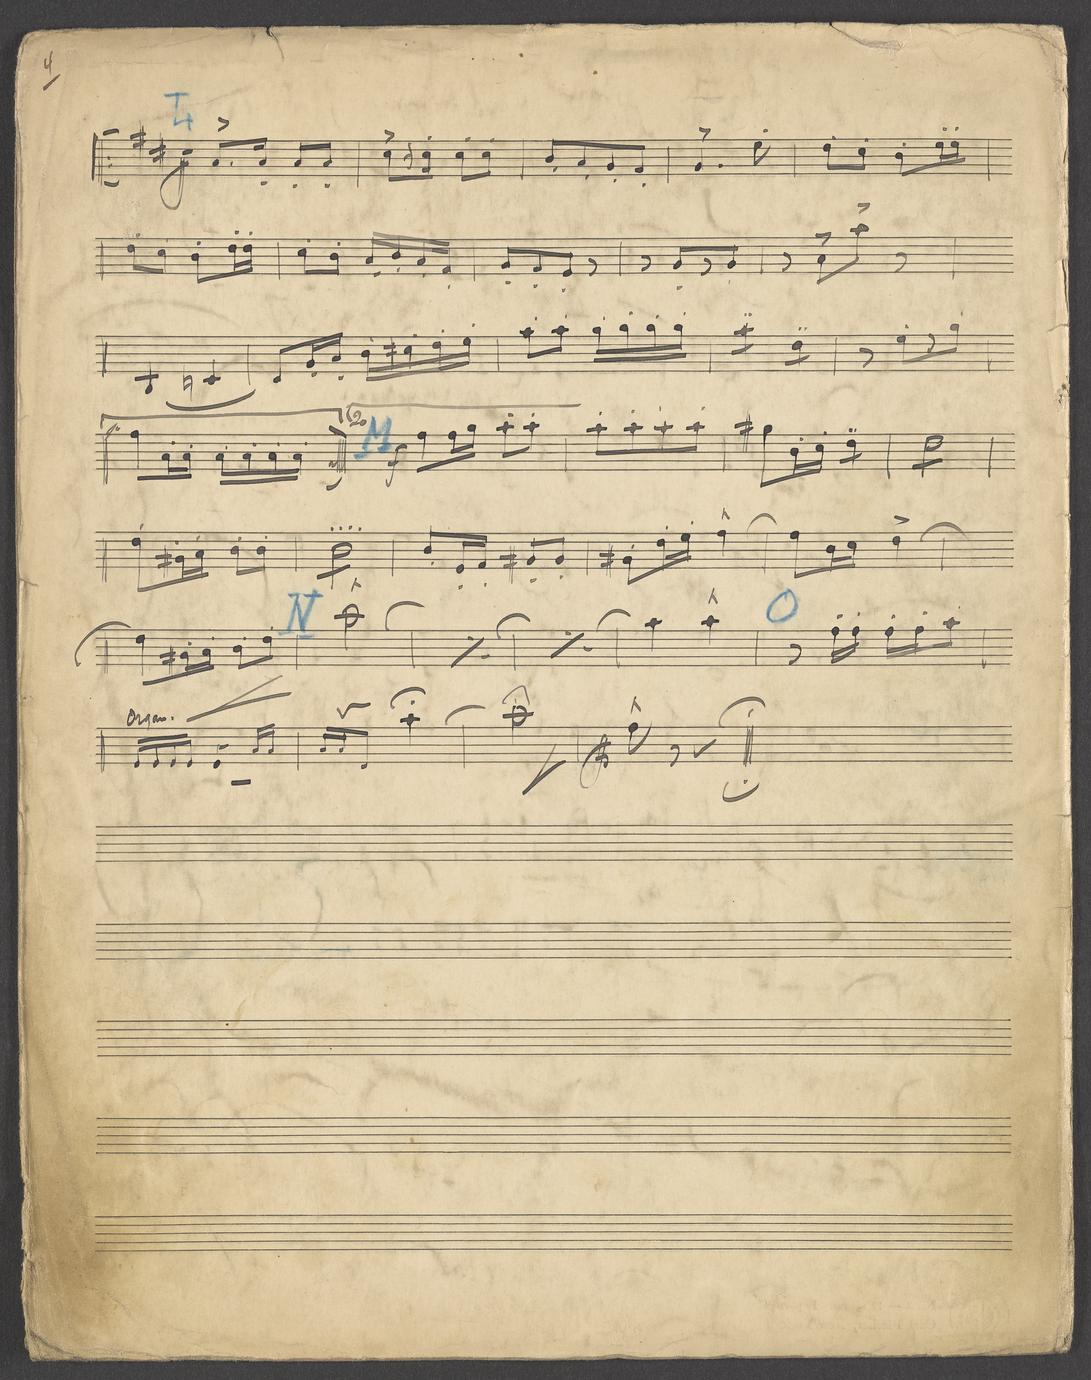 4
L
f
2o
M
f
N
O
Organ.